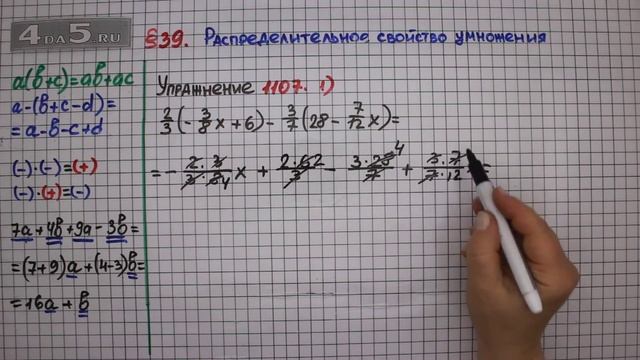 4DA5.RU
§39. Распределительное свойство умножения
a(b+c)=ab+ac
a-(b+c-d)=
=a-b-c+d
(-)·(-)=(+)
(-)·(+)=(-)
7a+4b+9a-3b=
=(7+9)a+(4-3)b=
=16a+b
Упражнение 1107. 1)
2/3(-3/8x+6)-3/7(28-7/12x)=
=-2·3/3·84x+2·62/3-3·284/7+3·7/7·12=